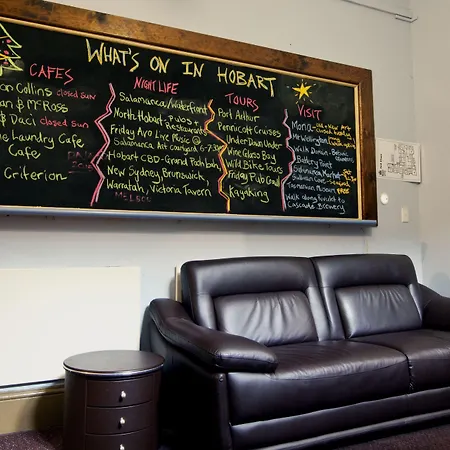 WHAT'S ON IN HOBART
CAFES
Collins closed sun
an & McRoss
& Daci closed sun
e Laundry Cafe
Cafe
Criterion
NIGHT LIFE
Salamanca/Waterfront
North Hobart - Pubs &
Restaurants
Friday Avo Live Music @
Salamanca Art
Hobart CBD - Grand Poohbah
New Sydney, Brunswick,
Warratah, Victoria Tavern
TOURS
Port Arthur
Pennicott Cruises
Under Down Under
Wine Glass Bay
Wild Bike Tours
Friday Pub Crawl
Kayaking
VISIT
Mona
Mt Wellington
Battery Point
Salamanca Market
Tasmanian Museum
Walk along Rivulet to
Cascade Brewery